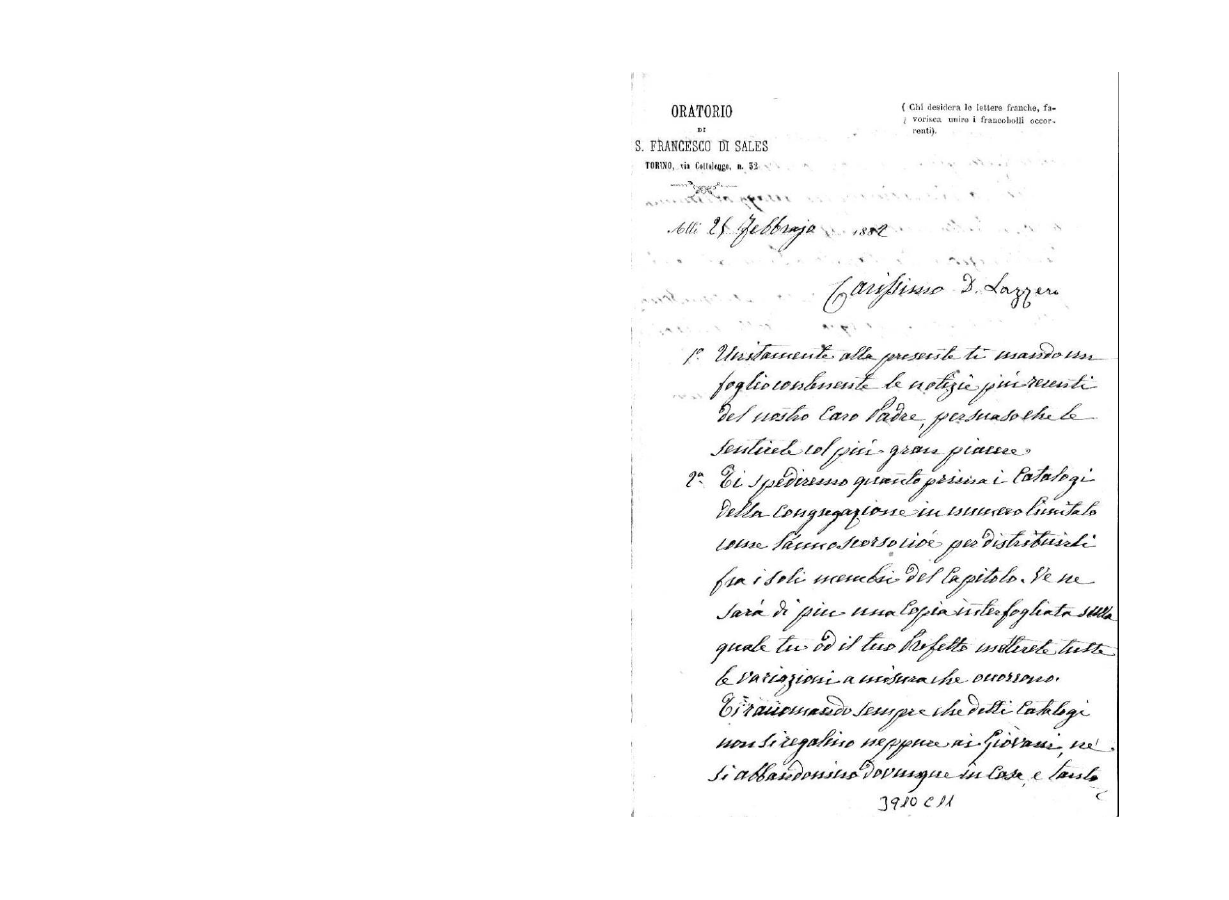 ORATORIO
DI
S. FRANCESCO DI SALES
TORINO, via Cottolengo, n. 32
( Chi desidera le lettere franche, fa-
vorisca unire i francobolli occor-
renti).
Alli Febbrajo 1882
Carissimo D. Lazzero
1º. Unitamente alla presente ti mando un
foglio contenente le notizie più recenti
del nostro Caro Padre, persuaso che le
sentirete col più gran piacere.
2ª. Ti spediremo quanto prima i Catalogi
della Congregazione in numero limitato
come l'anno scorso cioé per distribuirli
fra i soli membri del Capitolo. Ve ne
sará di piu una Copia interfogliata sulla
quale tu od il tuo Prefetto metterete tutte
le variazioni a misura che occorrono.
Ti raccomando sempre che detti Catalogi
non si regalino neppure ai Giovani, né
si abbandonino dovunque in Casa, e tanto
3910 C11